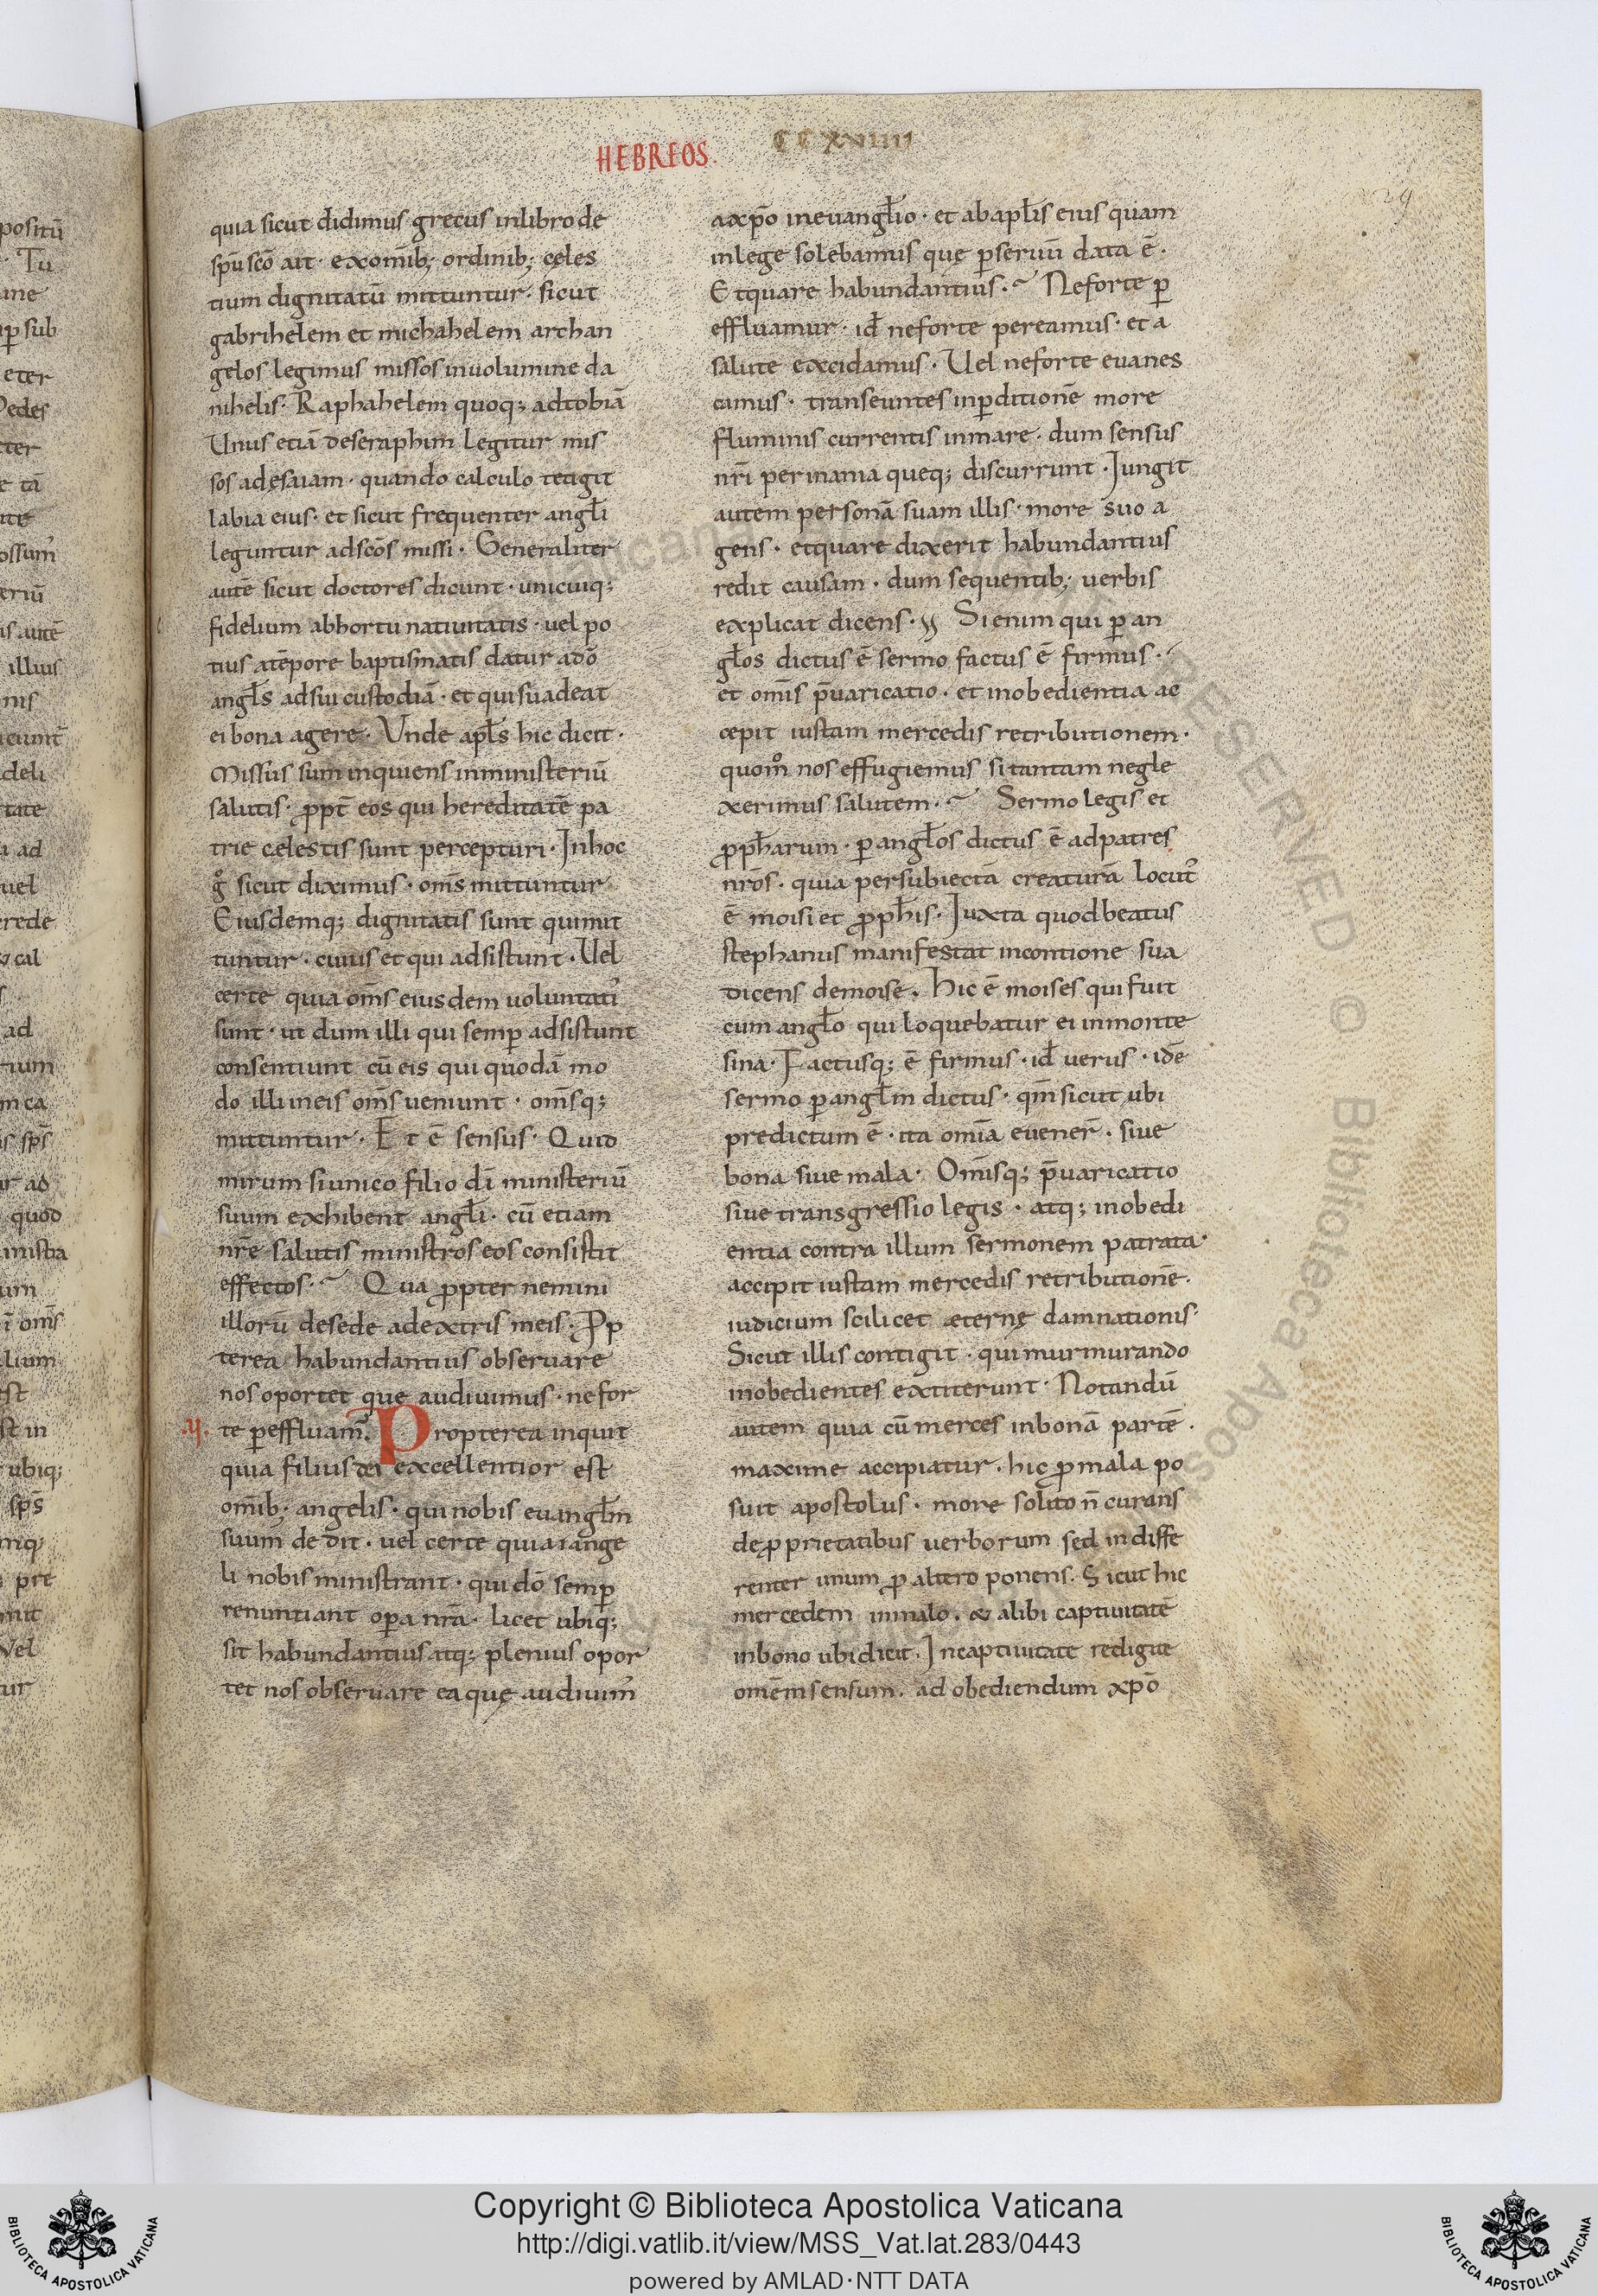 HEBREOS.
CCXVIIII
quia sicut didimus grecus inlibro de
sp̄u sc̄o ait · exom̄ib; ordinib; cęles
tium dignitatū mittuntur · sicut
gabrihelem et michahelem archan
gelos legimus missos inuolumine da
nihelis · Raphahelem quoq; adtobiā
Unus etiā deseraphim legitur mis
sos adęsaiam · quando calculo tetigit
labia eius · et sicut frequenter angłi
leguntur adsc̄os missi · Generaliter
autē sicut doctores dicunt · unicuiq;
fidelium abhortu natiuitatis · uel po
tius atēpore baptismatis datur adō
angłs adsui custodiā · et qui suadeat
ei bona agere · Unde apłs hic dicit ·
Missus sum inquiens inministeriū
salutis · ꝓpt̄ eos qui hereditatē pa
trie celestis sunt percepturi · Inhoc
gͦ sicut diximus · om̄s mittuntur
Eiusdemq; dignitatis sunt qui mit
tuntur · cuius et qui adsistunt · Uel
certe quia om̄s eiusdem uoluntatiˀ
sunt · ut dum illi qui semꝑ adsistunt
consentiunt cū eis qui quodā mo
do illi ineis om̄s ueniunt · om̄sq;
mittuntur · Et ē sensus · Quid
mirum si unico filio dī ministeriū
suum exhibent angłi · cū etiam
nr̄e salutis ministros eos consistit
effectos · Qua ꝓpter nemini
illorū desede adextris meis · Pp
terea habundantius obseruare
nos oportet que audiuimus · ne for
.ij. te ꝑeffluamˀ. Propterea inquit
quia filius dei excellentior est
om̄ib; angelis · qui nobis euangłm
suum dedit · uel certe quia iange
li nobis ministrant · qui dō semꝑ
renuntiant oꝑa nr̄a · licet ubiq;
sit habundantius atq; plenius opor
tet nos obseruare ea quę audiuimˀ
axp̄o ineuangłio · et abapłis eius quam
inlege solebamus quę ꝑseruū data ē ·
Etquare habundantius · Neforte ꝑ
effluamur · id̄ neforte pereamus · et a
salute excidamus · Uel neforte euanes
camus · transeuntes inꝑditionē more
fluminis currentis inmare · dum sensus
nr̄i per inania queq; discurrunt · Jungit
autem personā suam illis · more suo a
gens · etquare dixerit habundantius
redit causam · dum sequentib; uerbis
explicat dicens · Si enim qui ꝑ an
głos dictus ē sermo factus ē firmus ·
et om̄is p̄uaricatio · et inobedientia ac
cepit iustam mercedis retributionem ·
quom̊ nos effugiemus si tantam negle
xerimus salutem · Sermo legis et
ꝓph̄arum · ꝑ angłos dictus ē adpatres
nrōs · quia persubiectā creaturā locutˀ
ē moisi et ꝓph̄is · Juxta quod beatus
stephanus manifestat incontione sua
dicens demoise. Hic ē moises qui fuit
cum angło qui loquebatur ei inmonte
sina · Factusq; ē firmus · id̄ uerus · idē
sermo ꝑ angłm dictus · qm̄ sicut ubi
predictum ē · ita omīa euener̄ · siue
bona siue mala · Om̄isq; p̄uaricatio
siue transgressio legis · atq; inobedi
entia contra illum sermonem patrata ·
accipit iustam mercedis retributionē ·
iudicium scilicet æternę damnationis ·
Sicut illis contigit · qui murmurando
inobedientes extiterunt · Notandū
autem quia cū merces inbonā partē ·
maxime accipiatur · hic ꝓ mala po
suit apostolus · more solito n̄ curans
deꝓprietatibus uerborum sed indiffe
renter unum ꝓ altero ponens. Sicut hic
mercedem inmalo. & alibi captiuitatē
inbono ubi dicit. Incaptiuitate redigite
omēm sensum. ad obediendum xp̄o
Copyright © Biblioteca Apostolica Vaticana
http://digi.vatlib.it/view/MSS_Vat.lat.283/0443
powered by AMLAD·NTT DATA